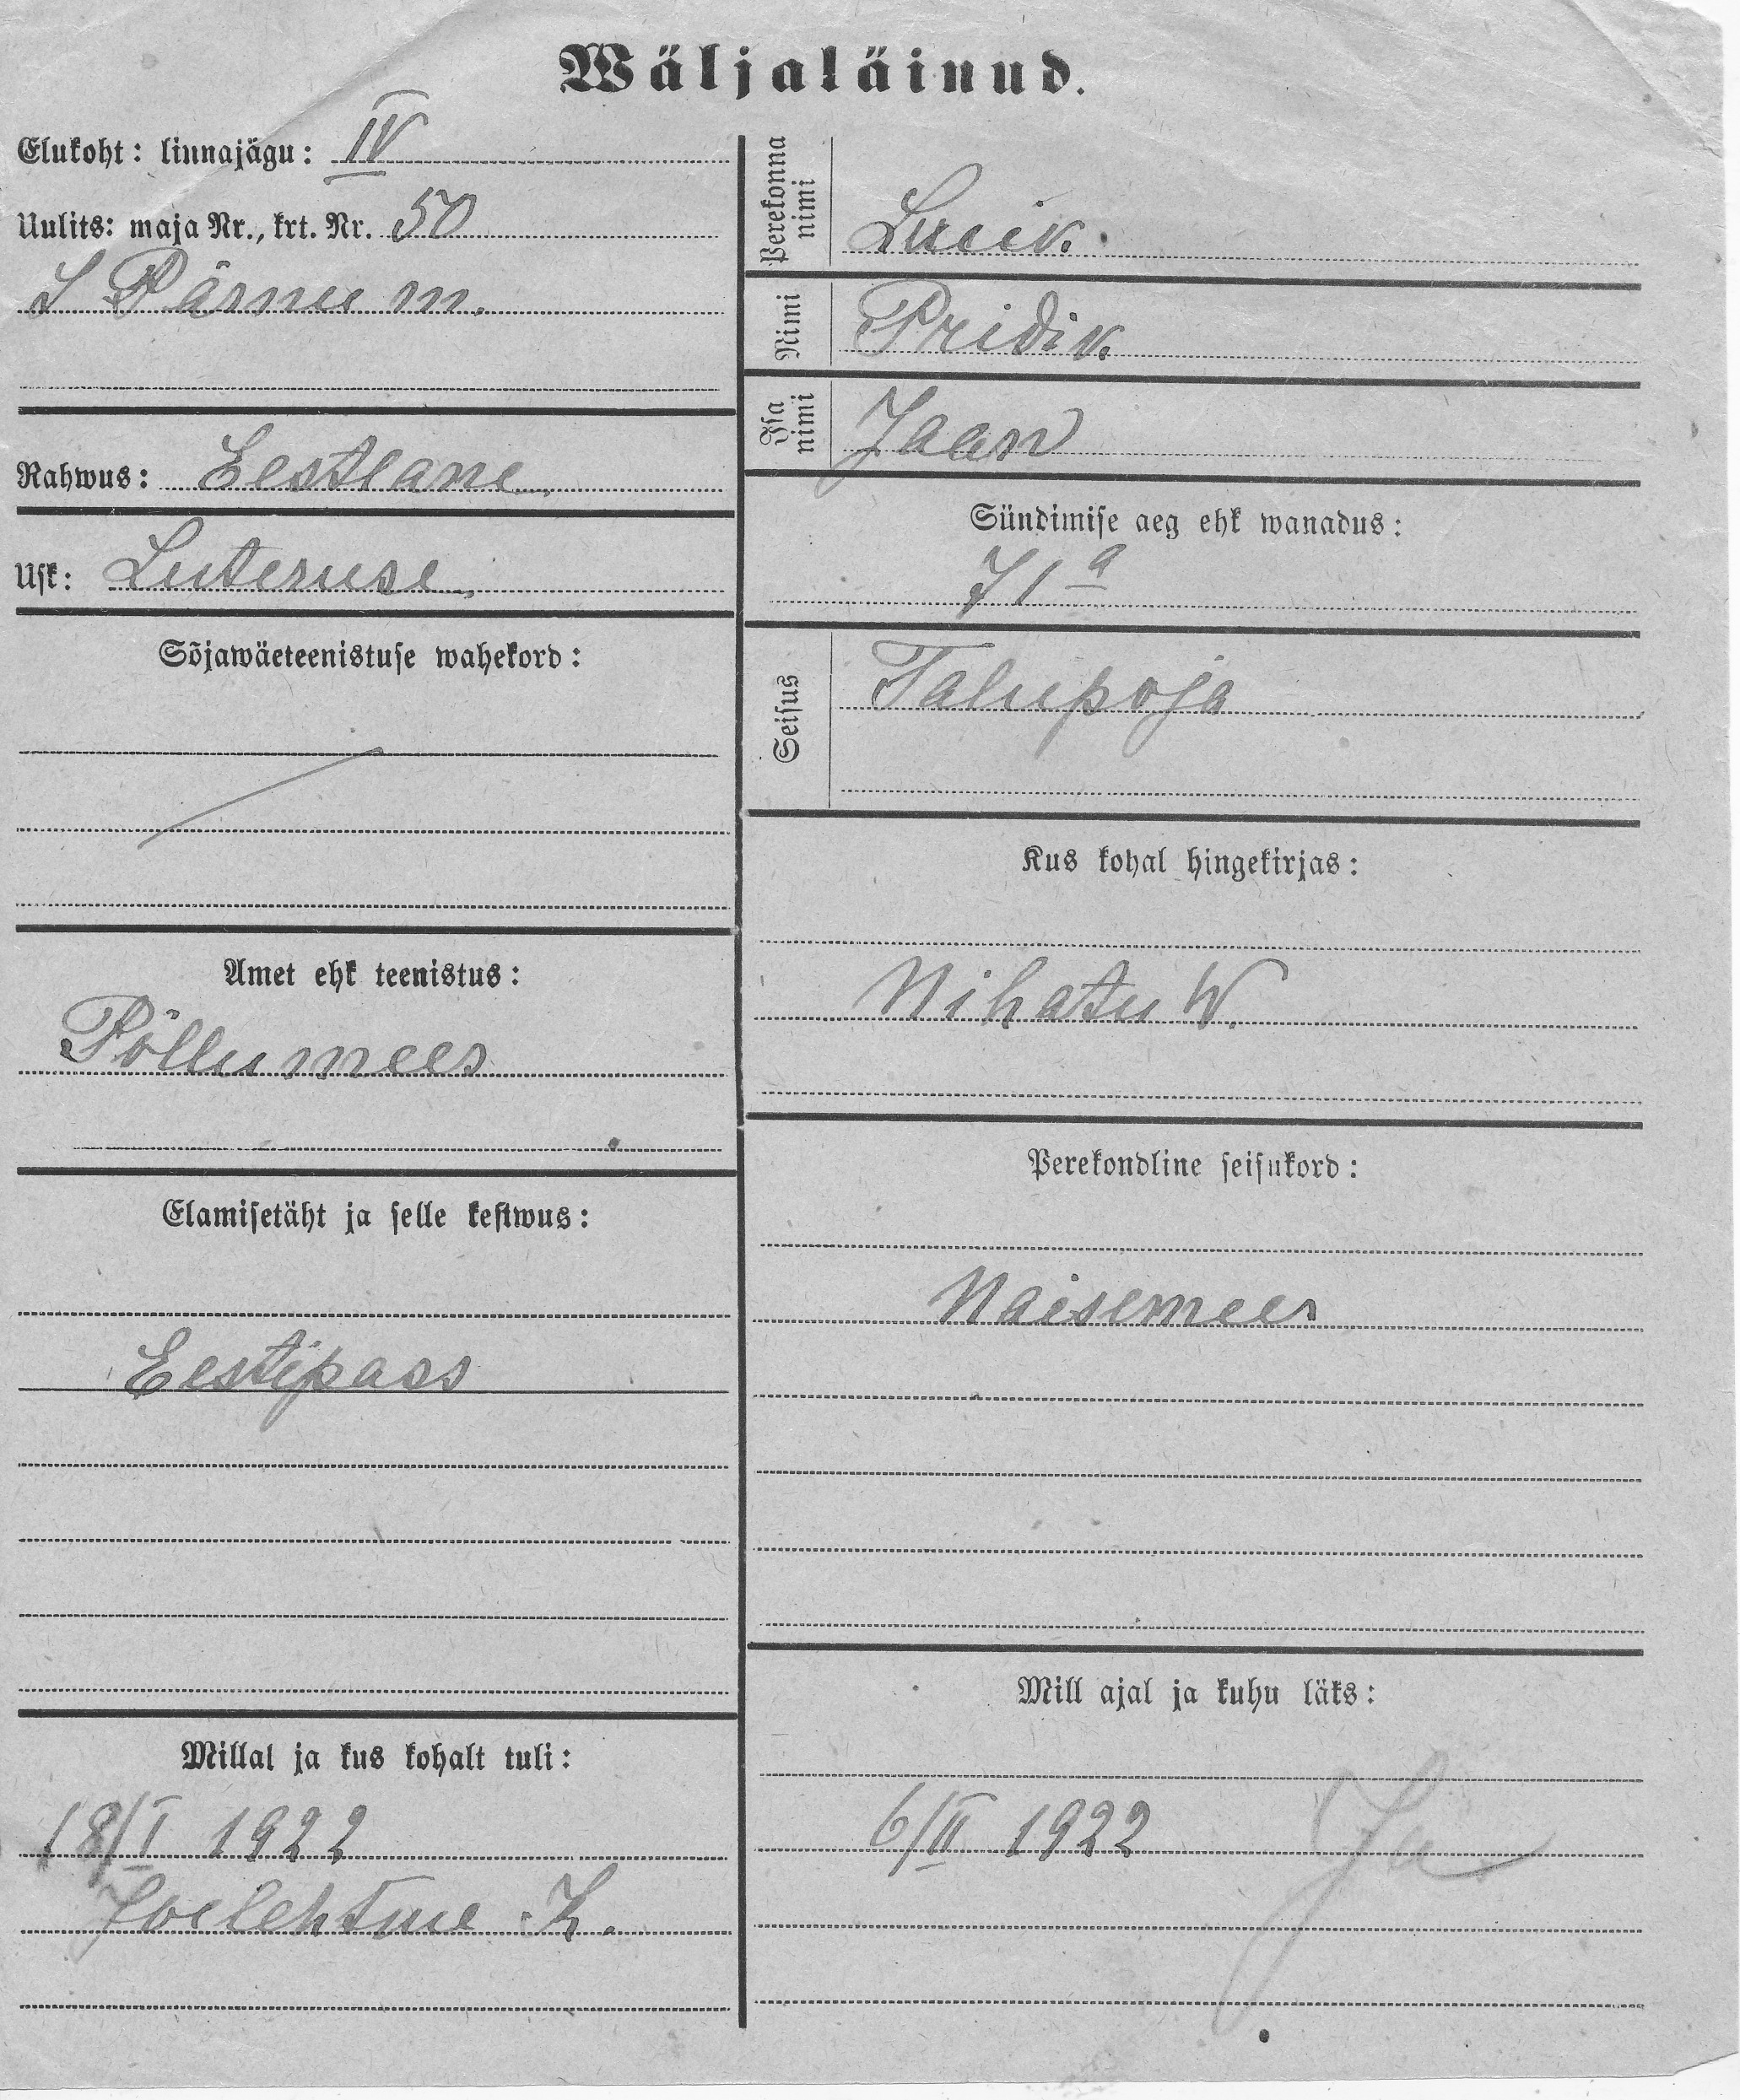 Wäljaläinud.
Elukoht: linnajägu: IV
Uulits: maja Nr., krt. Nr. 50
S Pärnu m.
Rahwus: Eestlane
Usk: Luteruse
Sõjawäeteenistuse wahekord:
Amet ehk teenistus:
Põllumees
Elamisetäht ja selle kestwus:
Eestipass
Millal ja kus kohalt tuli:
18/I 1922
Joelehtme K.
Perekonna nimi
Luuk.
Nimi Pridik
Isa nimi
Jaan
Sündimise aeg ehk wanadus:
71 a
Seisus Talupoja
Kus kohal hingekirjas:
Nihatu W.
Perekondline seisukord:
Naisemees
Mill ajal ja kuhu läks:
6/II 1922